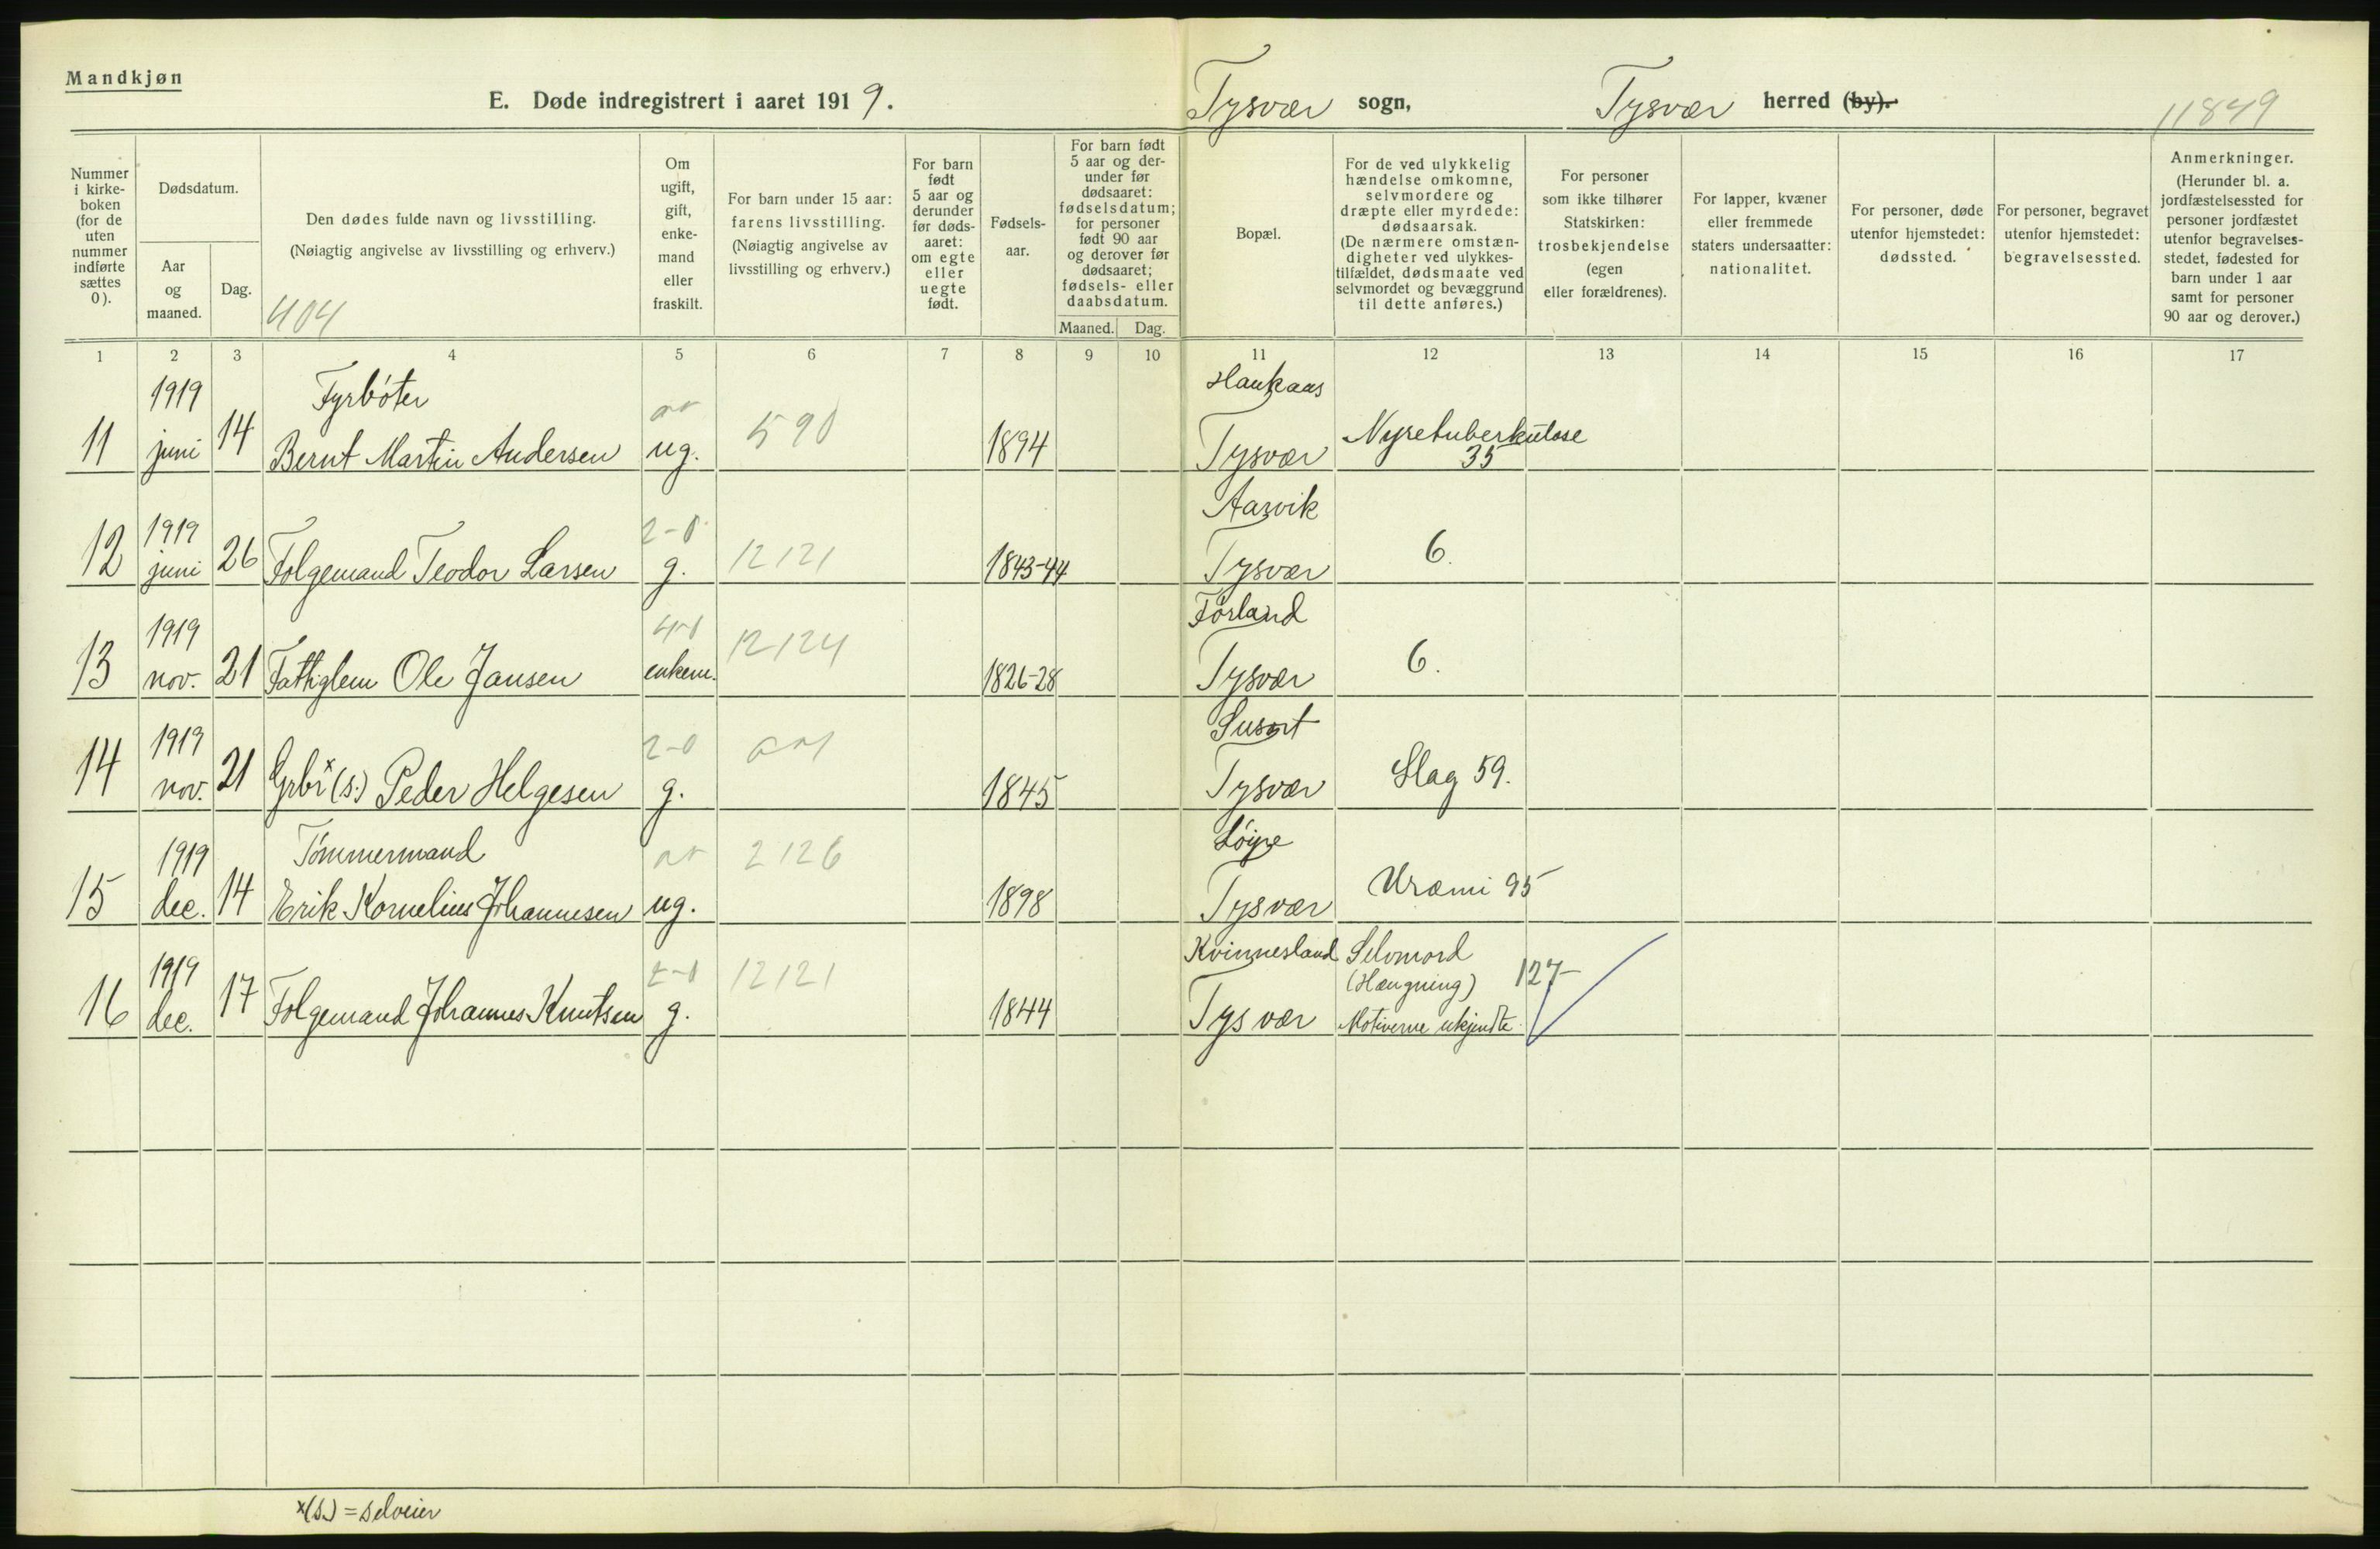 Mandkjøn
E. Døde indregistrert i aaret 1919.
Tysvær sogn,
Tysvær herred (by).
11849
Nummer i kirke-boken (for de uten nummer indførte sættes 0).
Dødsdatum.
Aar og maaned.
Dag.
Den dødes fulde navn og livsstilling.
(Nøiagtig angivelse av livsstilling og erhverv.)
404
Om ugift, gift, enke-mand eller fraskilt.
For barn under 15 aar: farens livsstilling. (Nøiagtig angivelse av livsstilling og erhverv.)
For barn født 5 aar og derunder før døds-aaret: om egte eller uegte født.
Fødsels-aar.
For barn født 5 aar og der-under før dødsaaret: fødselsdatum; for personer født 90 aar og derover før dødsaaret; fødsels- eller daabsdatum.
Maaned.
Dag.
Bopæl.
For de ved ulykkelig hændelse omkomne, selvmordere og dræpte eller myrdede: dødsaarsak. (De nærmere omstæn-digheter ved ulykkes-tilfældet, dødsmaate ved selvmordet og bevæggrund til dette anføres.)
For personer som ikke tilhører Statskirken: trosbekjendelse (egen eller forældrenes).
For lapper, kvæner eller fremmede staters undersaatter: nationalitet.
For personer, døde utenfor hjemstedet: dødssted.
For personer, begravet utenfor hjemstedet: begravelsessted.
Anmerkninger. (Herunder bl. a. jordfæstelsessted for personer jordfæstet utenfor begravelses-stedet, fødested for barn under 1 aar samt for personer 90 aar og derover.)
1 2 3 4 5 6 7 8 9 10 11 12 13 14 15 16 17
1919 Fyrbøter Haukaas
11 juni 14 Bernt Martin Andersen ug. 590 1894 Tysvær Nyretuberkulose 35
1919 2-0 Aarvik
12 juni 26 Folgemand Teodor Larsen g. 12121 1843-44 Tysvær 6.
1919 Førland
13 nov. 21 Fattiglem Ole Jansen enkem. 12124 1826-28 Tysvær 6.
1919 2-0 Susort
14 nov. 21 Grbr x (s.) Peder Helgesen g. 1845 Tysvær Slag 59.
1919 Tømmermand 2126 Løype
15 dec. 14 Erik Kornelius Johannesen ug. 1898 Tysvær Uræmi 95
1919 12121 Kvinnesland Selvmord
(Hængning) 127
16 dec. 17 Folgemand Johannes Knutsen g. 1844 Tysvær Motiverne ukjendte.
x(s.) = selveier